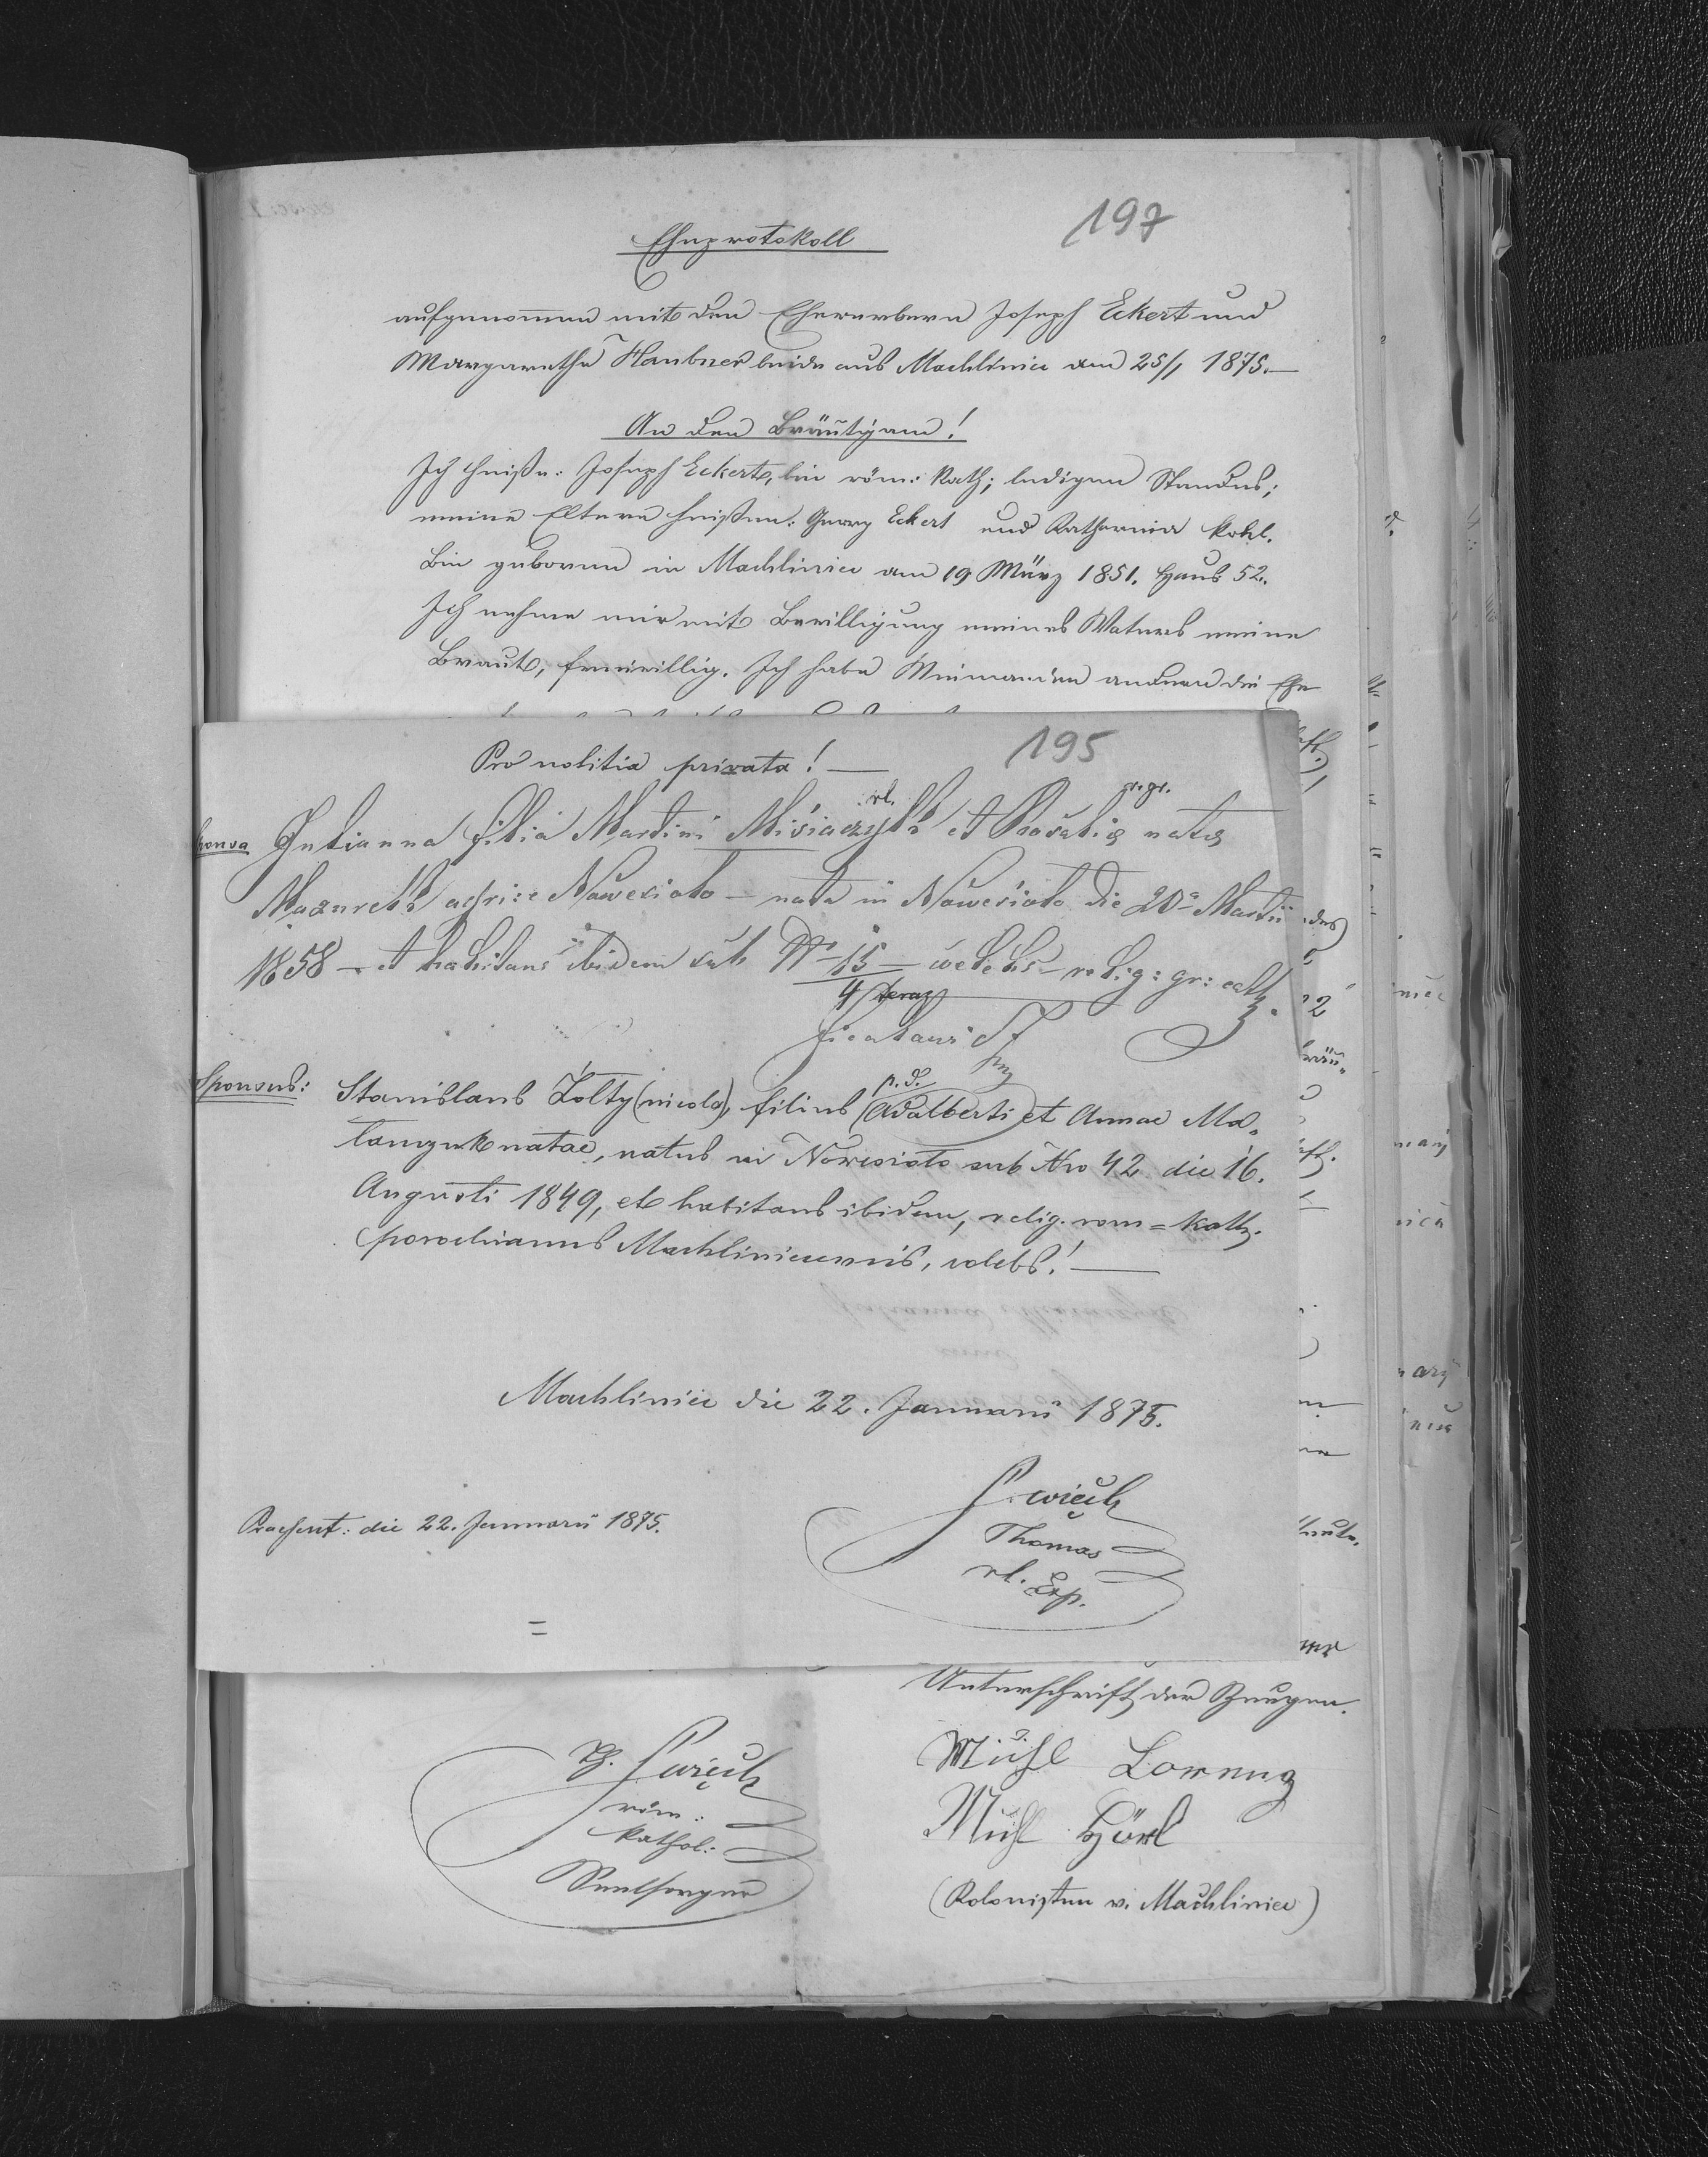 197
Eheprotokoll
aufgenommen mit den Ehewerbern Joseph Eckert und
Margarethe Haubner beide aus Machliniec am 25/1 1875.—
An den Bräutigam!
Ich heiße: Joseph Eckert, bin röm: kath; ledigen Standes;
meine Eltern heißen: Georg Eckert und Katharina Kohl.
Bin geboren in Machliniec am 19 März 1851. Haus 52.
Ich nehme mir mit Bewilligung meines Vaters meine
Braut, freiwillig. Ich habe Niemanden anderen die Ehe
195
Pro notitia privata! —
rl. gr.gr.
Sponsa Julianna filia Martini Misiaczyk et Rosalię natę
Mazurek agric: e Nowesioło – nata in Nowesioło die 20ª Martii
1858 – et habitans ibidem sub Nº 15 – coelebs – relig: gr: cath.
4 / teraz
Sponsus: Stanislaus Żołty (nicola), filius p.d. Adalberti et Annae Ma-
natae, natus in Nowesioło sub Nro 42 die 16.
Augusti 1849, et habitans ibidem, relig. rom=kath.
parochianus Machliniecensis, colebs! —
Machliniec die 22. Januarii 1875.
Praesent: die 22. Januarii 1875.
Świech
Thomas
rl. Exp.
=
Unterschrift der Zeugen.
Th. Świech
röm:
kathol:
Seelsorger
Mühl Lorenz
Mühl Görl
(Kolonisten v. Machliniec)